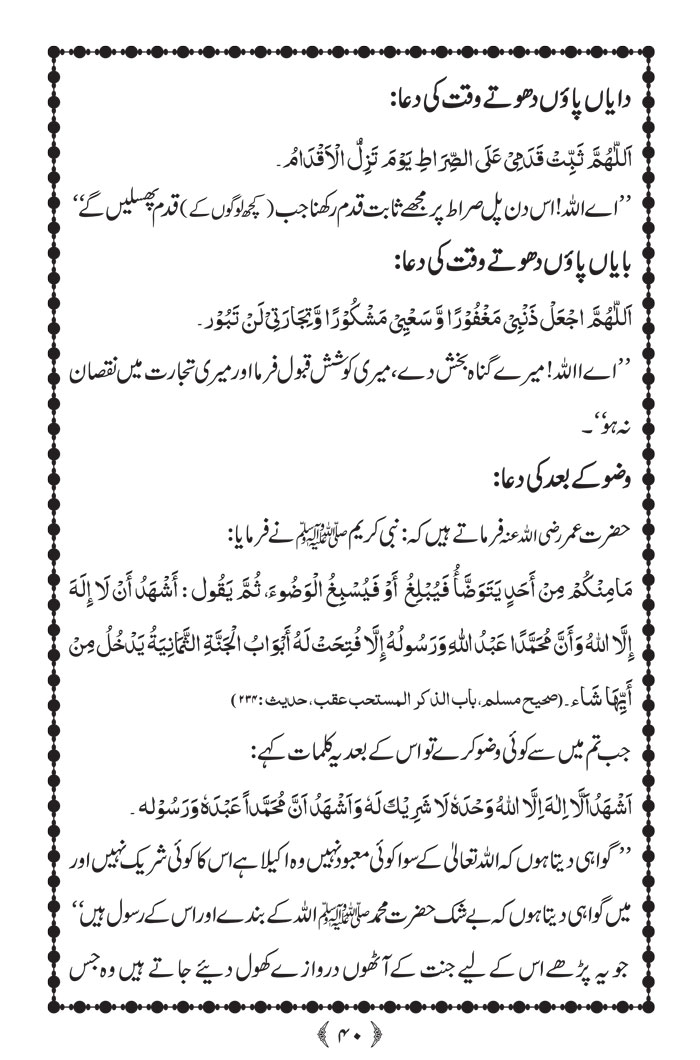 دایاں پاؤں دھوتے وقت کی دعا:
اَللّٰهُمَّ ثَبِّتْ قَدَمِیْ عَلَی الصِّرَاطِ یَوْمَ تَزِلُّ الْاَقْدَامُ۔
’’اے اللہ! اس دن پل صراط پر مجھے ثابت قدم رکھنا جب (کچھ لوگوں کے) قدم پھسلیں گے‘‘
بایاں پاؤں دھوتے وقت کی دعا:
اَللّٰهُمَّ اجْعَلْ ذَنْبِیْ مَغْفُوْرًا وَّ سَعْیِیْ مَشْکُوْرًا وَّ تِجَارَتِیْ لَنْ تَبُوْر۔
’’اے االلہ! میرے گناہ بخش دے، میری کوشش قبول فرما اور میری تجارت میں نقصان
نہ ہو‘‘۔
وضو کے بعد کی دعا:
حضرت عمر رضی اللہ عنہ فرماتے ہیں کہ: نبی کریم ﷺ نے فرمایا:
مَامِنْكُمْ مِنْ أَحَدٍ یَتَوَضَّأُ فَیُبْلِغُ أَوْ فَیُسْبِغُ الْوَضُوءَ، ثُمَّ یَقُول: أَشْهَدُ أَنْ لَا إِلَهَ
إِلَّا اللهُ وَأَنَّ مُحَمَّدًا عَبْدُ اللهِ وَرَسُولُهُ إِلَّا فُتِحَتْ لَهُ أَبْوَابُ الْجَنَّةِ الثَّمَانِیَةُ یَدْخُلُ مِنْ
أَیِّهَا شَاء۔ (صحیح مسلم، باب الذکر المستحب عقب، حدیث: ۲۳۴)
جب تم میں سے کوئی وضو کرے تو اس کے بعد یہ کلمات کہے:
اَشْهَدُ اَلَّا اِلٰهَ اِلَّا اللهُ وَحْدَهٗ لَا شَرِیْكَ لَهٗ وَاَشْهَدُ اَنَّ مُحَمَّداً عَبْدَهٗ وَرَسُوْله۔
’’گواہی دیتا ہوں کہ اللہ تعالیٰ کے سوا کوئی معبود نہیں وہ اکیلا ہے اس کا کوئی شریک نہیں اور
میں گواہی دیتا ہوں کہ بے شک حضرت محمد ﷺ اللہ کے بندے اور اس کے رسول ہیں‘‘
جو یہ پڑھے اس کے لیے جنت کے آٹھوں دروازے کھول دیئے جاتے ہیں وہ جس
﴿۴۰﴾